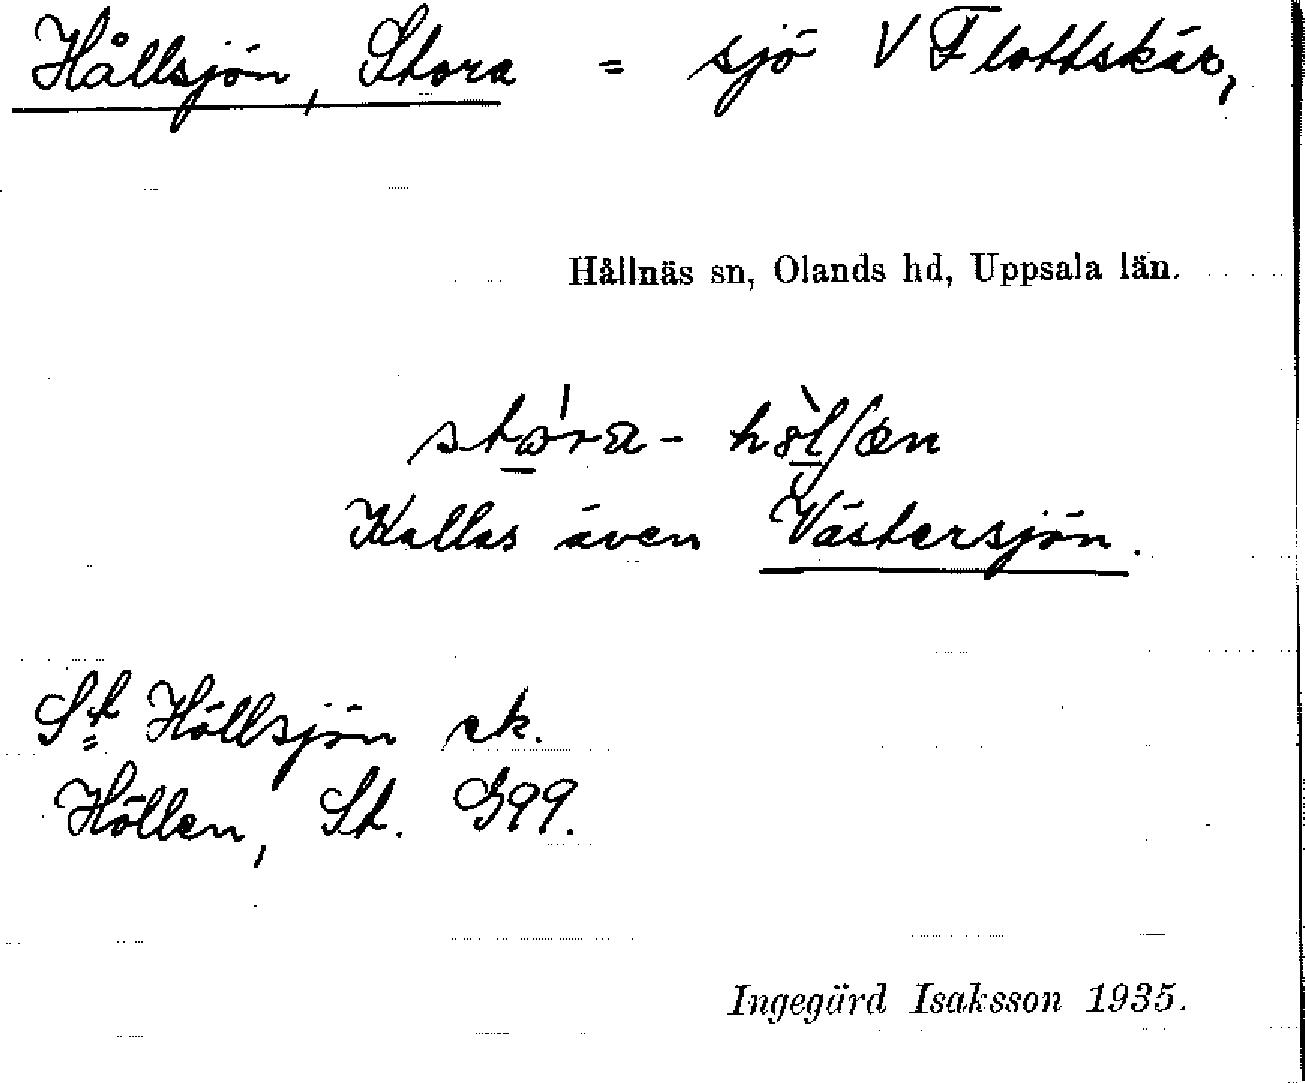 Hållsjön, Stora = sjö V Flottskär,
Hållnäs sn, Olands hd, Uppsala län.
Kallas även Västersjön.
St Höllsjön ek.
Höllen, St. G99.
Ingegärd Isaksson 1935.